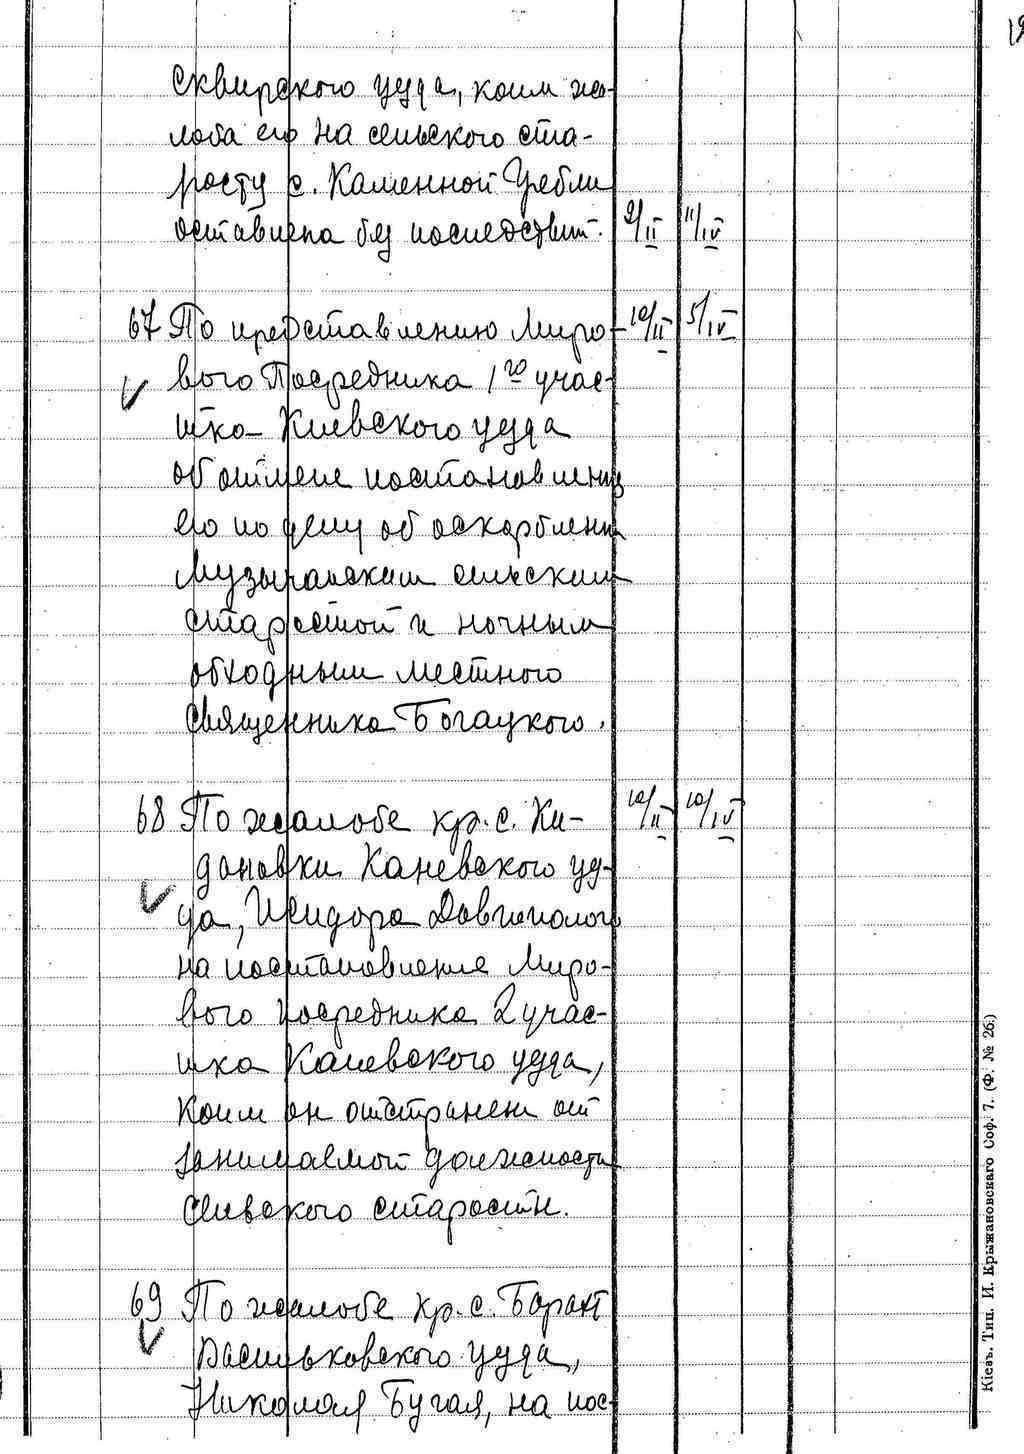 Сквирского уезда, коим жа-
лоба его на сельского ста-
росту с. Каменной Гребли
оставлена без последствий. 9/II 11/IV
67 По представлению Миро- 10/II 5/IV
вого Посредника 1го учас-
тка Киевского уезда
об отмене постановления
его по делу об оскорблении
Музычанским сельским
старостой и ночным
обходным местного
Священника Богацкого.
68 По жалобе кр. с. Ки- 10/II 10/IV
дановки Каневского уез-
да, Исидора Довгополого
на постановление Миро-
вого посредника 2 учас-
тка Каневского уезда,
коим он отстранен от
занимаемой должности
сельского старосты.
69 По жалобе кр. с. Барахт
Васильковского уезда,
Николая Бугая, на пос-
Кіевъ. Тип. И. Крыжановскаго Соф. 7. (Ф. № 26.)